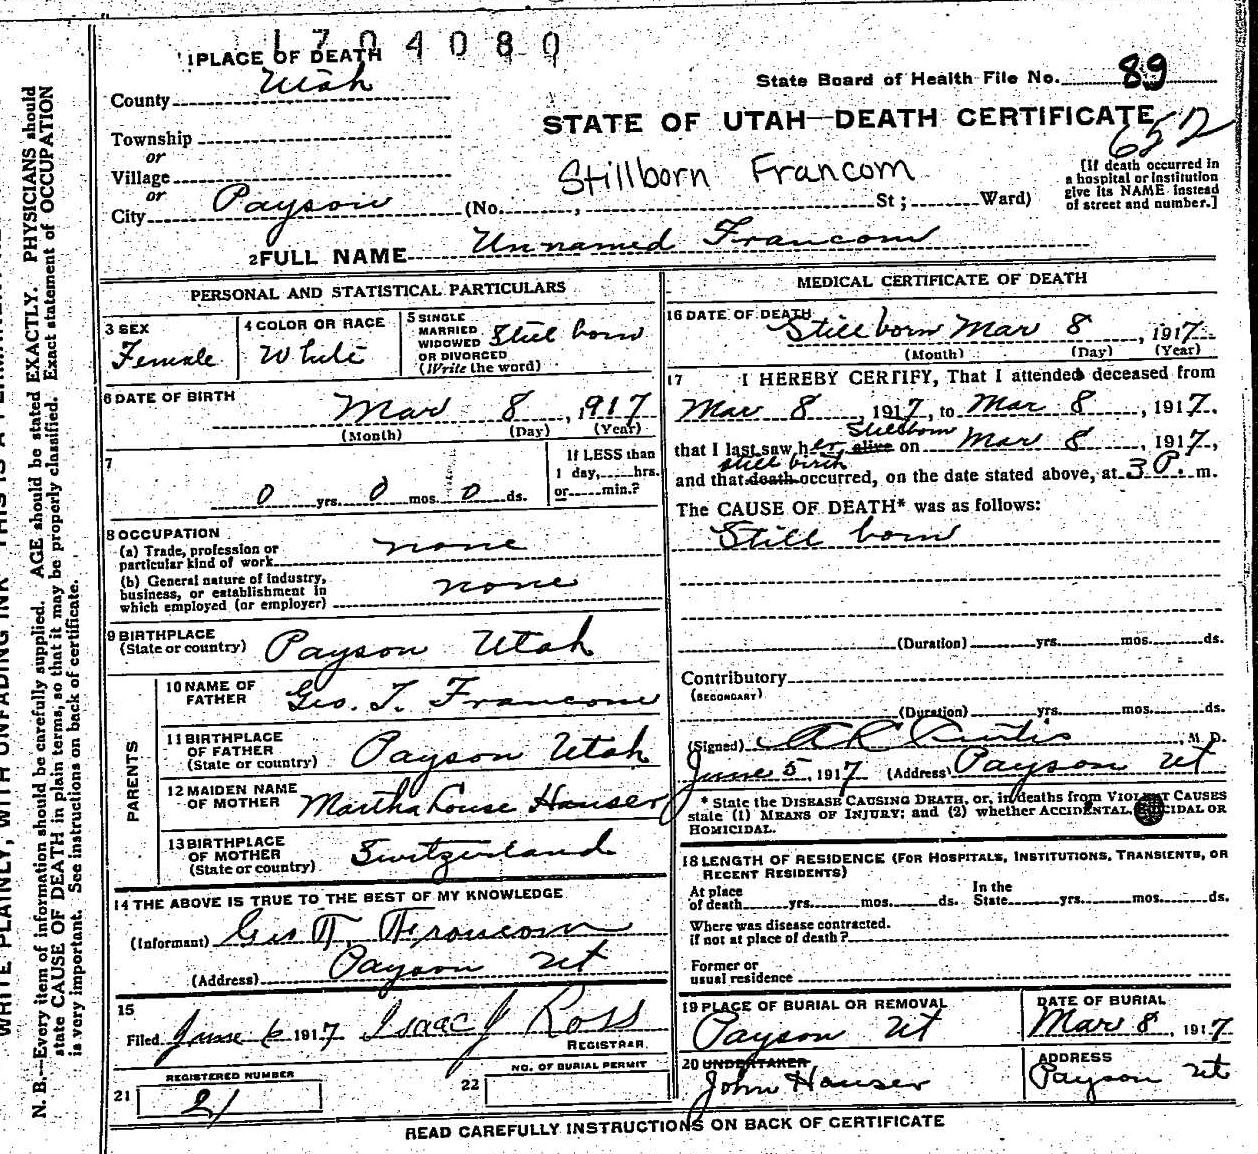 1704080
1 PLACE OF DEATH
County Utah
State Board of Health File No. 89
STATE OF UTAH—DEATH CERTIFICATE
652
Township
or
Village
or
City Payson
Stillborn Francom
(No. , St ; Ward)
[If death occurred in
a hospital or institution
give its NAME instead
of street and number.]
2 FULL NAME Unnamed Francom
PERSONAL AND STATISTICAL PARTICULARS
3 SEX
Female
4 COLOR OR RACE
White
5 SINGLE
MARRIED
WIDOWED
OR DIVORCED
(Write the word)
Still born
6 DATE OF BIRTH
Mar 8, 1917
(Month) (Day) (Year)
7
0 yrs. 0 mos. 0 ds.
If LESS than
1 day, hrs.
or min.?
8 OCCUPATION
(a) Trade, profession or
particular kind of work none
(b) General nature of industry,
business, or establishment in
which employed (or employer) none
9 BIRTHPLACE
(State or country) Payson Utah
PARENTS
10 NAME OF
FATHER Geo. T. Francom
11 BIRTHPLACE
OF FATHER
(State or country) Payson Utah
12 MAIDEN NAME
OF MOTHER Martha Louse Hauser
13 BIRTHPLACE
OF MOTHER
(State or country) Switzerland
14 THE ABOVE IS TRUE TO THE BEST OF MY KNOWLEDGE
(Informant) Geo T. Francom
(Address) Payson Ut
15
Filed June 6 1917 Isaac J Ross
REGISTRAR.
REGISTERED NUMBER
21 21
NO. OF BURIAL PERMIT
22
MEDICAL CERTIFICATE OF DEATH
16 DATE OF DEATH
Still born Mar 8, 1917
(Month) (Day) (Year)
17 I HEREBY CERTIFY, That I attended deceased from
Mar 8, 1917, to Mar 8, 1917.
Stillborn
that I last saw her alive on Mar 8, 1917,
still birth
and that death occurred, on the date stated above, at 3 P. m.
The CAUSE OF DEATH* was as follows:
Still born
(Duration) yrs. mos. ds.
Contributory
(SECONDARY)
(Duration) yrs. mos. ds.
(Signed) A R Curtis, M. D.
June 5, 1917 (Address) Payson Ut
* State the DISEASE CAUSING DEATH, or, in deaths from VIOLENT CAUSES
state (1) MEANS OF INJURY; and (2) whether ACCIDENTAL, SUICIDAL OR
HOMICIDAL.
18 LENGTH OF RESIDENCE (FOR HOSPITALS, INSTITUTIONS, TRANSIENTS, OR
RECENT RESIDENTS)
At place
of death yrs. mos. ds.
In the
State yrs. mos. ds.
Where was disease contracted.
if not at place of death?
Former or
usual residence
19 PLACE OF BURIAL OR REMOVAL
Payson Ut
DATE OF BURIAL
Mar 8, 1917
20 UNDERTAKER
John Hauser
ADDRESS
Payson Ut
READ CAREFULLY INSTRUCTIONS ON BACK OF CERTIFICATE
N. B.—Every item of information should be carefully supplied. AGE should be stated EXACTLY. PHYSICIANS should
state CAUSE OF DEATH in plain terms, so that it may be properly classified. Exact statement of OCCUPATION
is very important. See instructions on back of certificate.
WRITE PLAINLY, WITH UNFADING INK THIS IS A